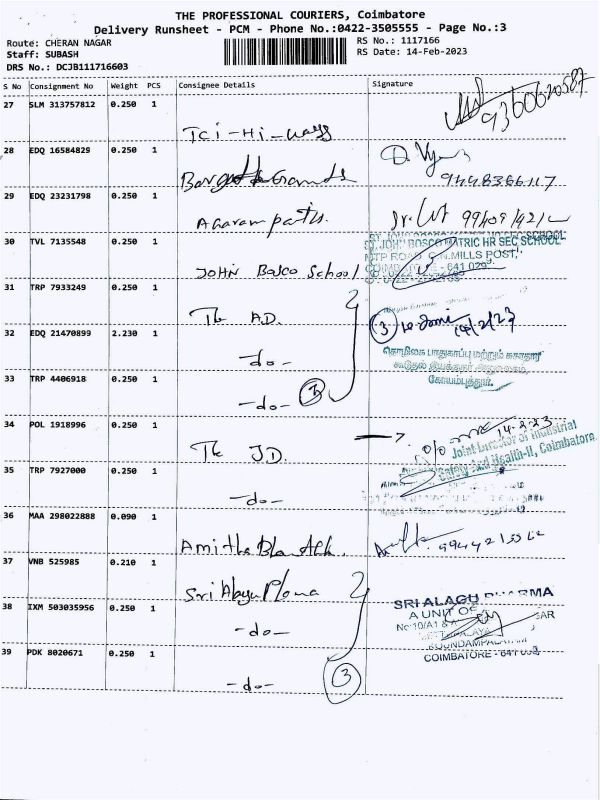 THE PROFESSIONAL COURIERS, Coimbatore
Delivery Runsheet - PCM - Phone No.:0422-3505555 - Page No.:3
Route: CHERAN NAGAR
RS No.: 1117166
Staff: SUBASH
RS Date: 14-Feb-2023
DRS No.: DCJB111716603
S No Consignment No Weight PCS Consignee Details Signature
27 SLM 313757812 0.250 1
Tci-Hi-ways
28 EDQ 16584829 0.250 1
9448366117
29 EDQ 23231798 0.250 1
Agaram
30 TVL 7135548 0.250 1
ST. JOHN BOSCO MATRIC HR SEC SCHOOL
MTP ROAD, G.N.MILLS POST,
COIMBATORE - 641 029
JOHN Bosco School
31 TRP 7933249 0.250 1
The A.D.
3
14/2/23
32 EDQ 21470899 2.230 1
-do-
33 TRP 4406918 0.250 1
-do- 3
கோயம்புத்தூர்.
34 POL 1918996 0.250 1
14-2-23
The JD.
Joint Director of Industrial
Safety And Health-II, Coimbatore
35 TRP 7927000 0.250 1
-do-
36 MAA 298022888 0.090 1
Amitha
37 VNB 525985 0.210 1
Sri
38 IXM 503035956 0.250 1
-do-
SRI ALAGU PHARMA
A UNIT OF
COIMBATORE - 641
39 PDK 8020671 0.250 1
-do- 3